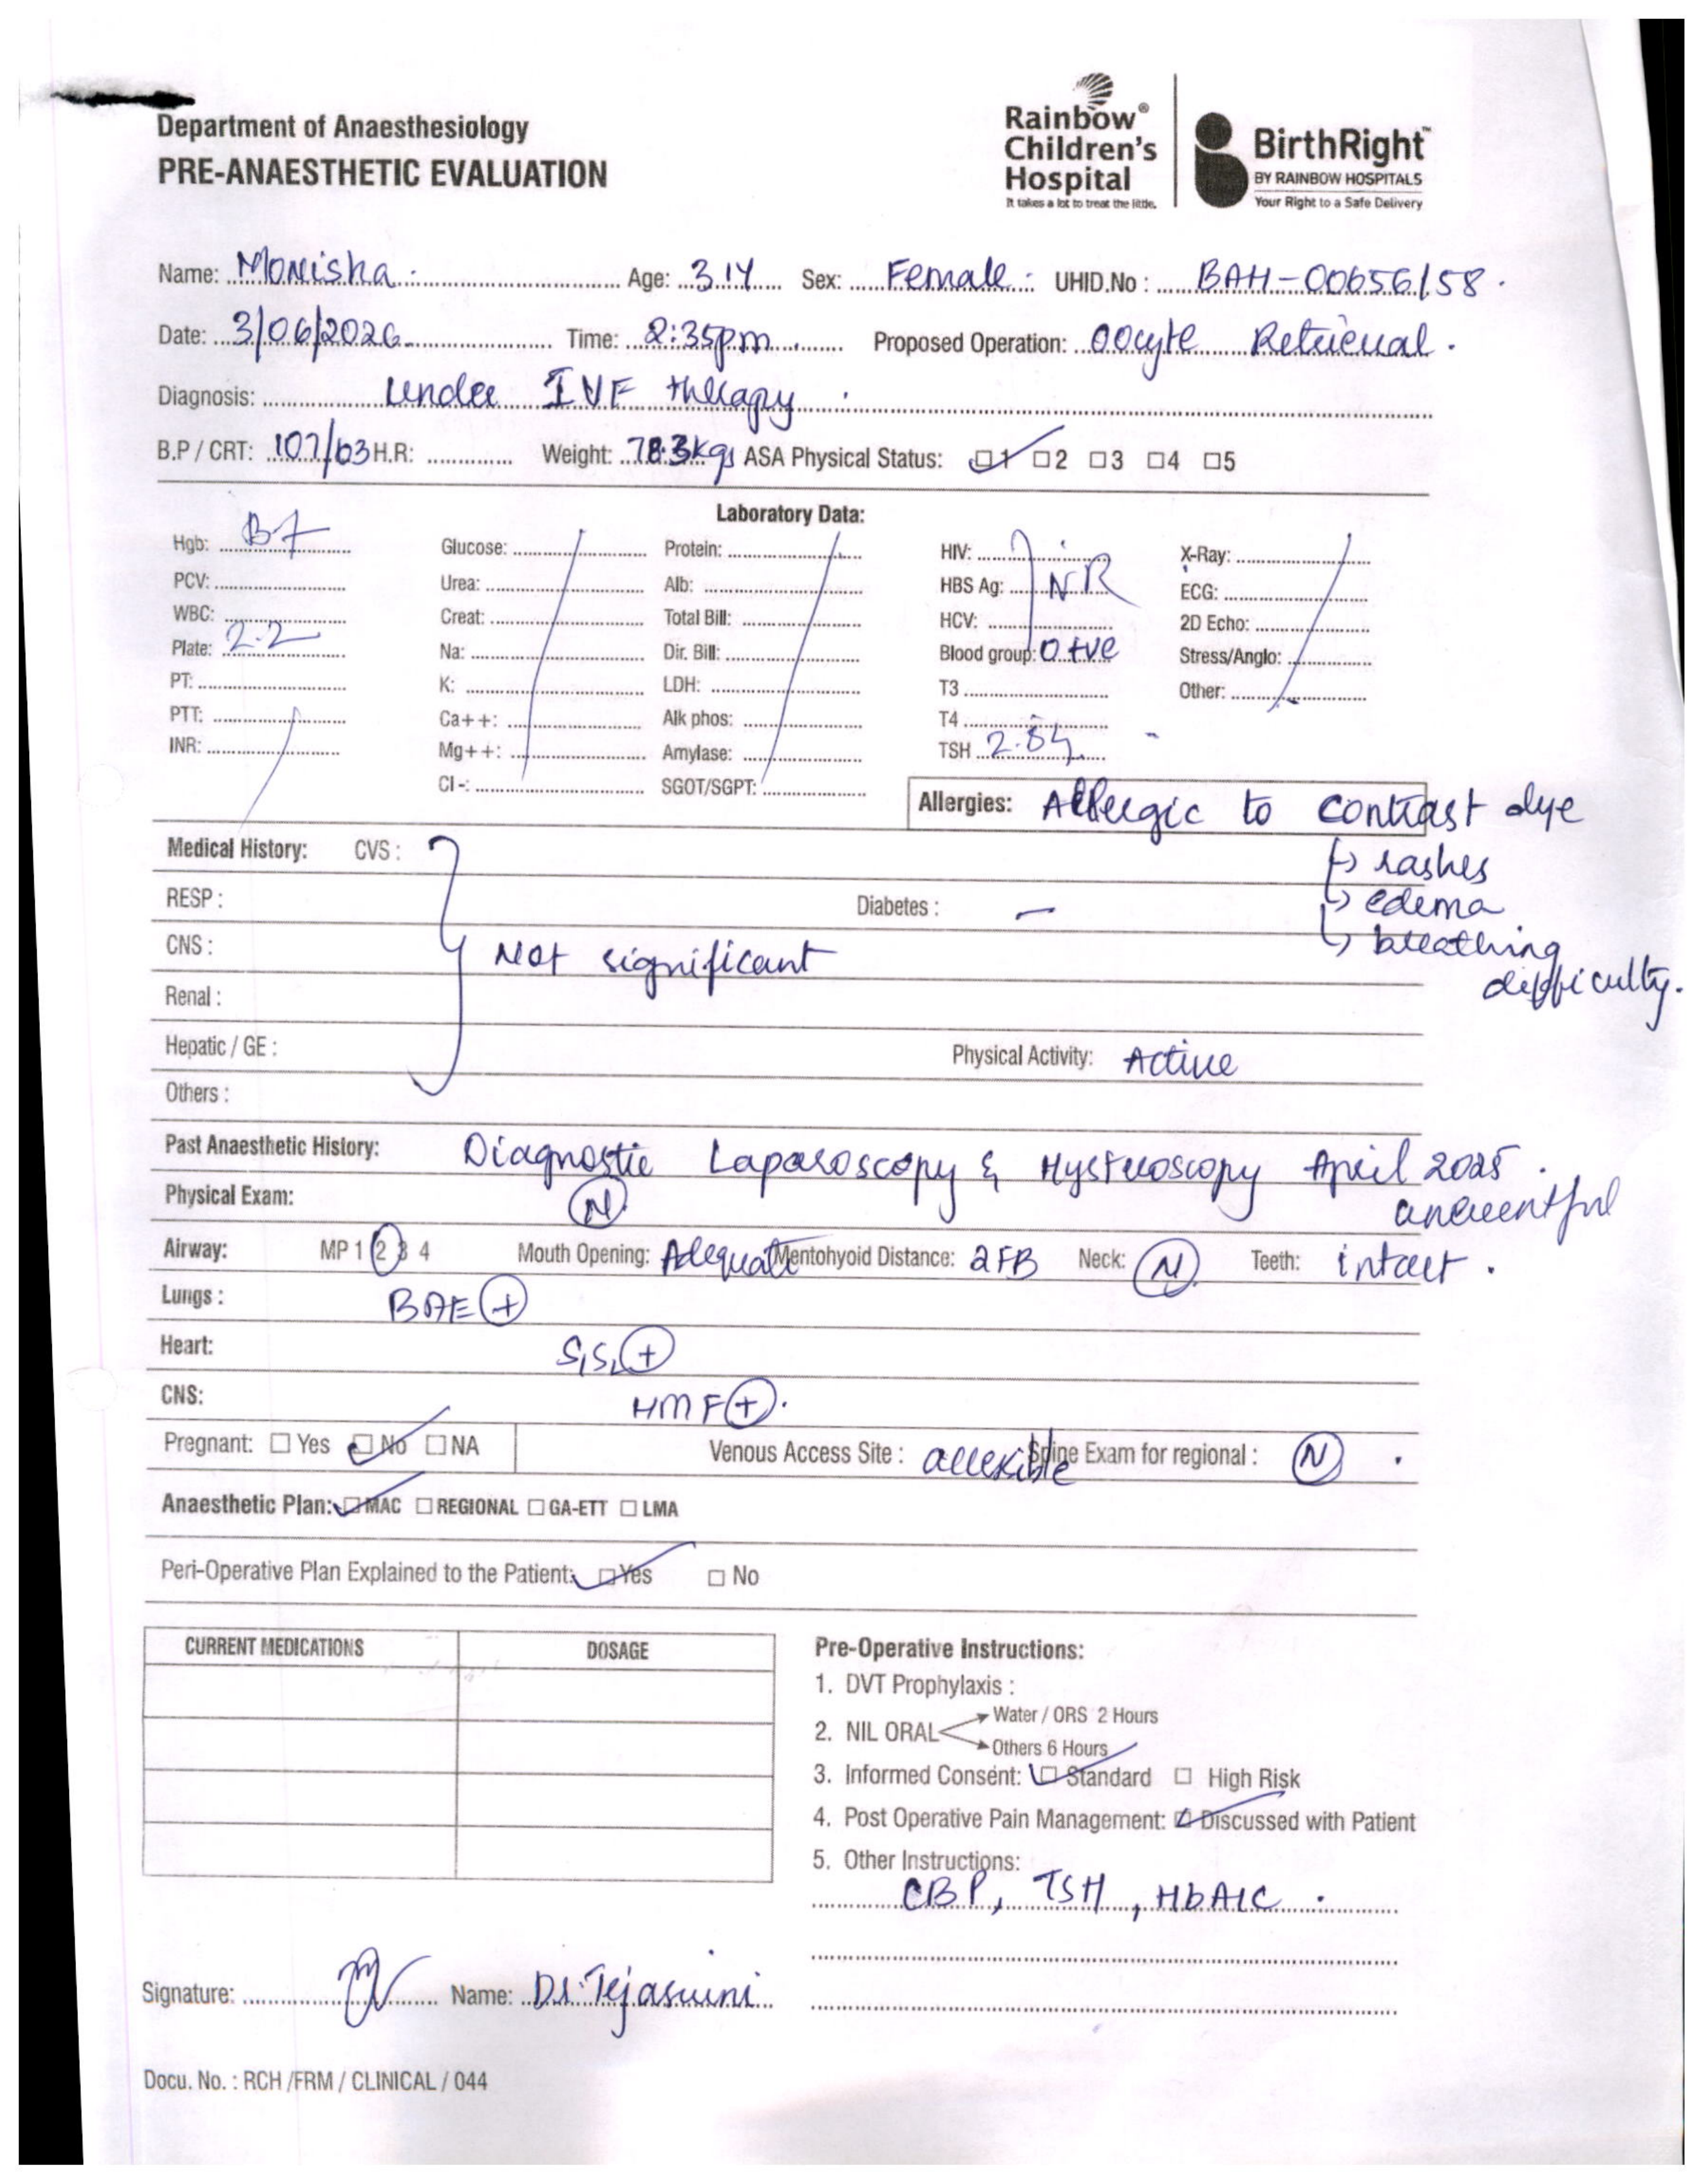 Department of Anaesthesiology
PRE-ANAESTHETIC EVALUATION
Rainbow® Children's Hospital
It takes a lot to treat the little.
BirthRight™
BY RAINBOW HOSPITALS
Your Right to a Safe Delivery
Name: Monisha Age: 31Y Sex: Female UHID.No : BAH-00656158.
Date: 3/06/2026 Time: 2:35pm Proposed Operation: Oocyte Retrieval.
Diagnosis: Under IVF therapy
B.P / CRT: 107/63 H.R: Weight: 78.3kgs ASA Physical Status: ☑1 ☐2 ☐3 ☐4 ☐5
Laboratory Data:
Hgb: Glucose: Protein: HIV: X-Ray:
PCV: Urea: Alb: HBS Ag: NR ECG:
WBC: Creat: Total Bill: HCV: 2D Echo:
Plate: 2.2 Na: Dir. Bill: Blood group: O +ve Stress/Anglo:
PT: K: LDH: T3 Other:
PTT: Ca++: Alk phos: T4
INR: Mg++: Amylase: TSH
Cl -: SGOT/SGPT:
Allergies: Allergic to contrast dye
↳ rashes
↳ edema
↳ breathing difficulty.
Medical History: CVS :
RESP : Diabetes : –
CNS : Not significant
Renal :
Hepatic / GE : Physical Activity: Active
Others :
Past Anaesthetic History: Diagnostic Laparoscopy & Hysteroscopy April 2025.
uneventful
Physical Exam: N
Airway: MP 1 2 3 4 Mouth Opening: Adequate Mentohyoid Distance: 2FB Neck: N Teeth: intact.
Lungs : BAE +
Heart: S1S2 +
CNS: HMF +.
Pregnant: ☐ Yes ☑ No ☐ NA Venous Access Site : accessible Spine Exam for regional : N
Anaesthetic Plan: ☑ MAC ☐ REGIONAL ☐ GA-ETT ☐ LMA
Peri-Operative Plan Explained to the Patient: ☑ Yes ☐ No
CURRENT MEDICATIONS DOSAGE
Pre-Operative Instructions:
1. DVT Prophylaxis :
2. NIL ORAL Water / ORS 2 Hours
Others 6 Hours
3. Informed Consent: ☑ Standard ☐ High Risk
4. Post Operative Pain Management: ☑ Discussed with Patient
5. Other Instructions:
CBP, TSH, HbA1C.
Signature: Name: Dr. Tejaswini
Docu. No. : RCH /FRM / CLINICAL / 044